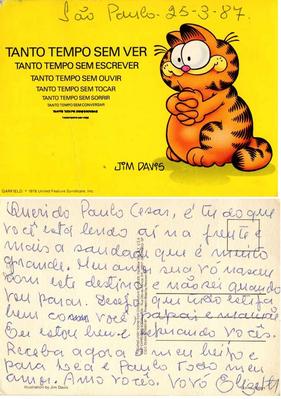 São Paulo. 25-3-87.
TANTO TEMPO SEM VER
TANTO TEMPO SEM ESCREVER
TANTO TEMPO SEM OUVIR
TANTO TEMPO SEM TOCAR
TANTO TEMPO SEM SORRIR
TANTO TEMPO SEM CONVERSAR
JIM DAVIS
GARFIELD: © 1978 United Feature Syndicate, Inc.
Querido Paulo Cesar, é tudo que
você está lendo aí na frente e
mais a saudade que é muito
grande. Meu amor, sua vó nasceu
com este destino e não sei quando
vou parar. Desejo que tudo esteja
bem com você papai e mamãe
Eu estou bem e esperando vocês.
Receba agora meu beijo e
para Leca e Paulo todo meu
amor. Amo vocês. Vovó Elizabeth
Illustration by Jim Davis